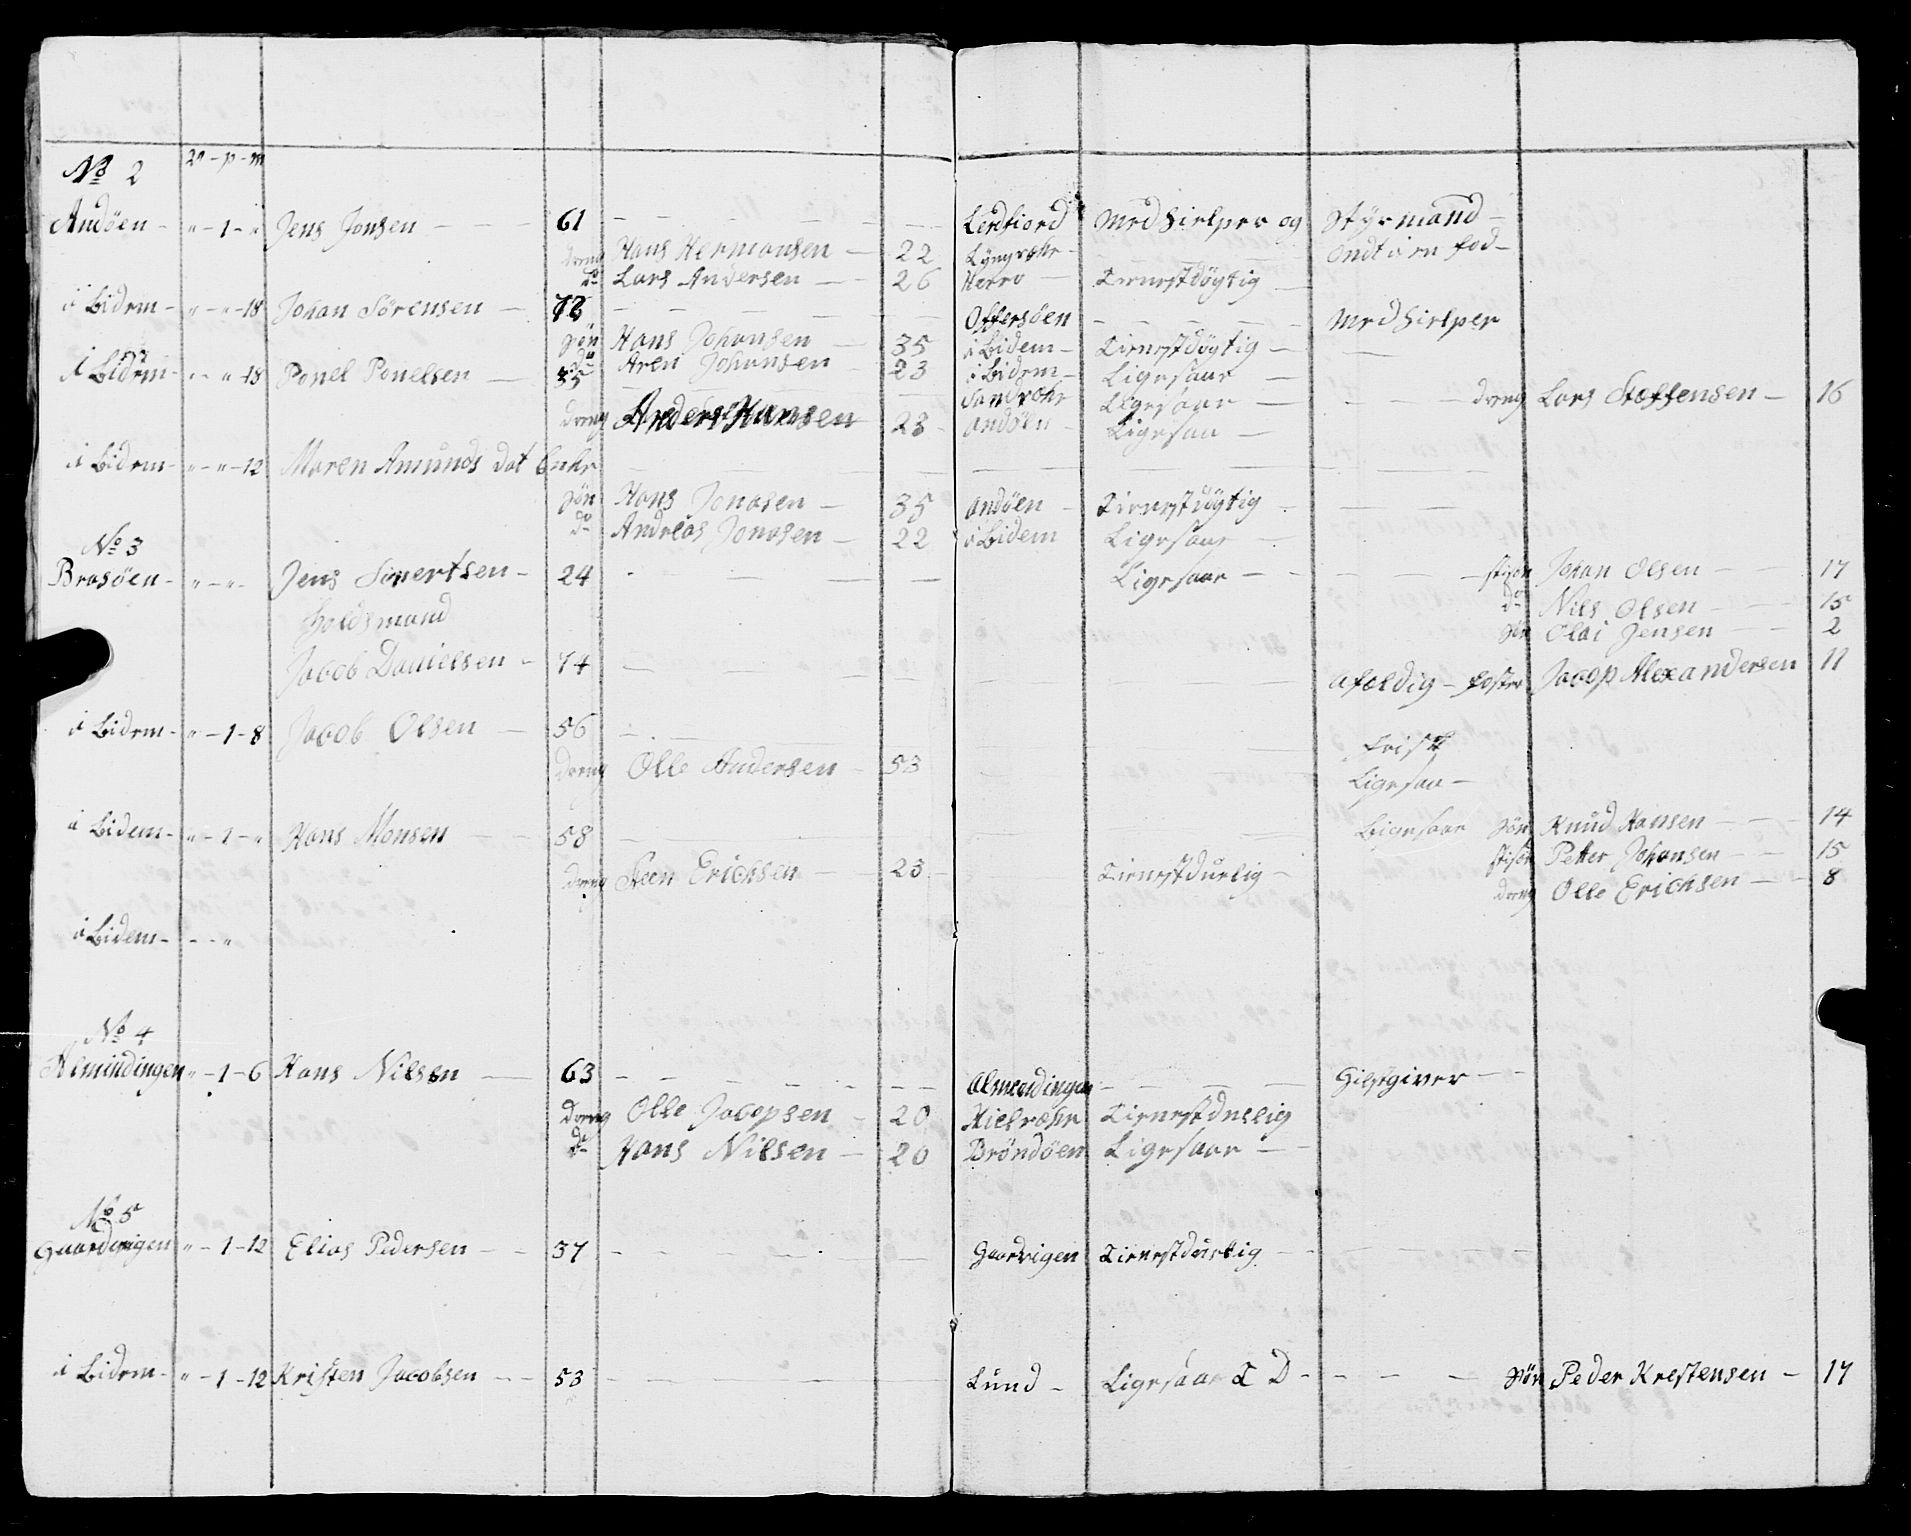 No 2 V - p - m
Andöen - " - 1 - " Jens Jonsen - - - 61 - - - - - Lerdfiord Medhielper og Styrmand -
dreng Hans Hermansen - 22 Ondt i en fod -
do Lars Andersen - - 26 Tienestdögtig -
i Bidem - " - " - 18 Johan Sörensen - 72 - - - - - Offersöen - - - - Medhielper
Sön Hans Johansen - 35 i Bidem - Tienestdögtig - -
do Aren Johansen - 23 i Bidem - Ligesaar -
i Bidem - " - " - 18 Ponel Ponelsen - 35 - - - Ligesaar - - - - dreng Lars Steffensen - 16
dreng Anders Hansen 23 - Andöen - Ligesaa -
i Bidem - " - " - 12 Maren Amunds dat Enke - - - - - - - -
Sön Hans Jonasen - 35 Andöen - Tienestdögtig - - - -
do Andreas Jonasen - 22 i Bidem Ligesaar -
No 3
Brasöen - " - " - Jens Sivertsen - 24 - - - - Ligesaar - - - - - stisön Johan Olsen - - 17
Holdsmand do Nils Olsen - - 15
Sön Olai Jensen - - 2
Jacob Danielsen - 74 - - - - - - - afældig - foster Jacop Alexandersen 11
i Bidem - " - 1 - 8 Jacob Olsen - 56 - - - - Frisk
dreng Olle Andersen - 53 Ligesaa -
i Bidem - " - 1 - " Hans Monsen - - 58 - - - - Ligesaar Sön Knud Hansen - - - 14
stisön Petter Johansen - - 15
dreng Steen Erichsen - 23 - Tienestduelig - dreng Olle Erichsen - - 8
i Bidem - - - "
No 4
Almindingen " - 1 - 6 Hans Nilsen - 63 - - - - - - - Almindingen - - - - Gilstgiver - -
dreng Olle Jacopsen - 20 Tienestduelig
do Hans Nilsen - 20 Bröndöen Ligesaar - -
No 5
Gaardvigen " - 1 - 12 Elias Pedersen - - 37 - - - - - Gaardvigen Tienestduelig - - - - -
i Bidem - " - 1 - 12 Kristen Jacobsen - - 53 - - - - - Lund - Ligesaar T D - - - - Sön Peder Krestensen - 17